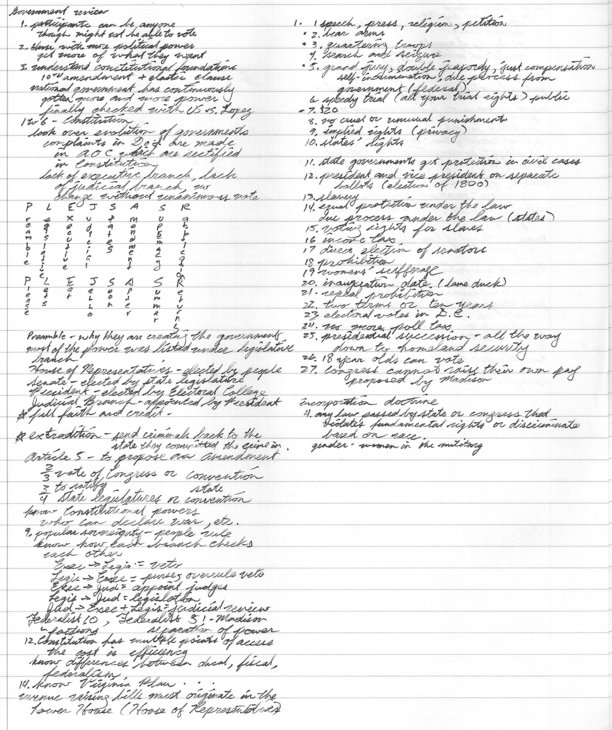 Government review
1. participants can be anyone
though might not be able to vote
2. those with more political power
get more of what they want
3. understand constitutional foundations
10th amendment + elastic clause
national government has continuously
gotten more and more power
finally checked with US vs. Lopez
Constitution
look over evolution of governments
complaints in are made
in AOC which are rectified
in Constitution
lack of executive branch, lack
of judicial branch, no
change without unanimous vote
P L E J S A S R
P L E J S A S R
Preamble - why they are creating the government
most of the power was listed under legislative
branch
House of Representatives - elected by people
Senate - elected by state legislature
President - elected by Electoral College
Judicial Branch - appointed by President
full faith and credit -
extradition - send criminals back to the
state they committed the crime in
Article 5 - to propose an amendment
2/3 vote of Congress or convention
3/4 to ratify state
state legislatures or convention
know Constitutional powers
who can declare war, etc.
9. popular sovereignty - people rule
know how each branch checks
each other
Exec → Legis = veto
Legis → Exec = purse, overrule veto
Exec → Jud = appoint judges
Legis → Jud = legislation
Jud → Exec + Legis = judicial review
Federalist 10, Federalist 51 - Madison
factions separation of power
12. Constitution has multiple points of access
the cost is efficiency
know differences between dual, fiscal,
federalism
14. know Virginia Plan . . .
revenue raising bills must originate in the
Lower House (House of Representatives)
1. 1 speech, press, religion, petition
2. bear arms
3. quartering troops
4. search and seizure
5. grand jury, double jeopardy, just compensation
self-incrimination, due process from
government (federal)
6. speedy trial (all your trial rights) public
7. $20
8. no cruel or unusual punishments
9. implied rights (privacy)
10. states' rights
11. state governments get protection in civil cases
12. president and vice president on separate
ballots (election of 1800)
13. slavery
14. equal protection under the law
due process under the law (states)
15. voting rights for slaves
16 income tax
17 direct election of senators
18 prohibition
19 womens' sufferage
20. inauguration date (lame duck)
21. repeal prohibition
22. two terms or ten years
23 electoral votes in D.C.
24. no more poll tax
25. presidential succession - all the way
down to homeland security
26. 18 year olds can vote
27. Congress cannot raise their own pay
proposed by Madison
incorporation doctrine
4. any law passed by state or congress that
violates fundamental rights or discriminate
based on race.
gender - women in the military